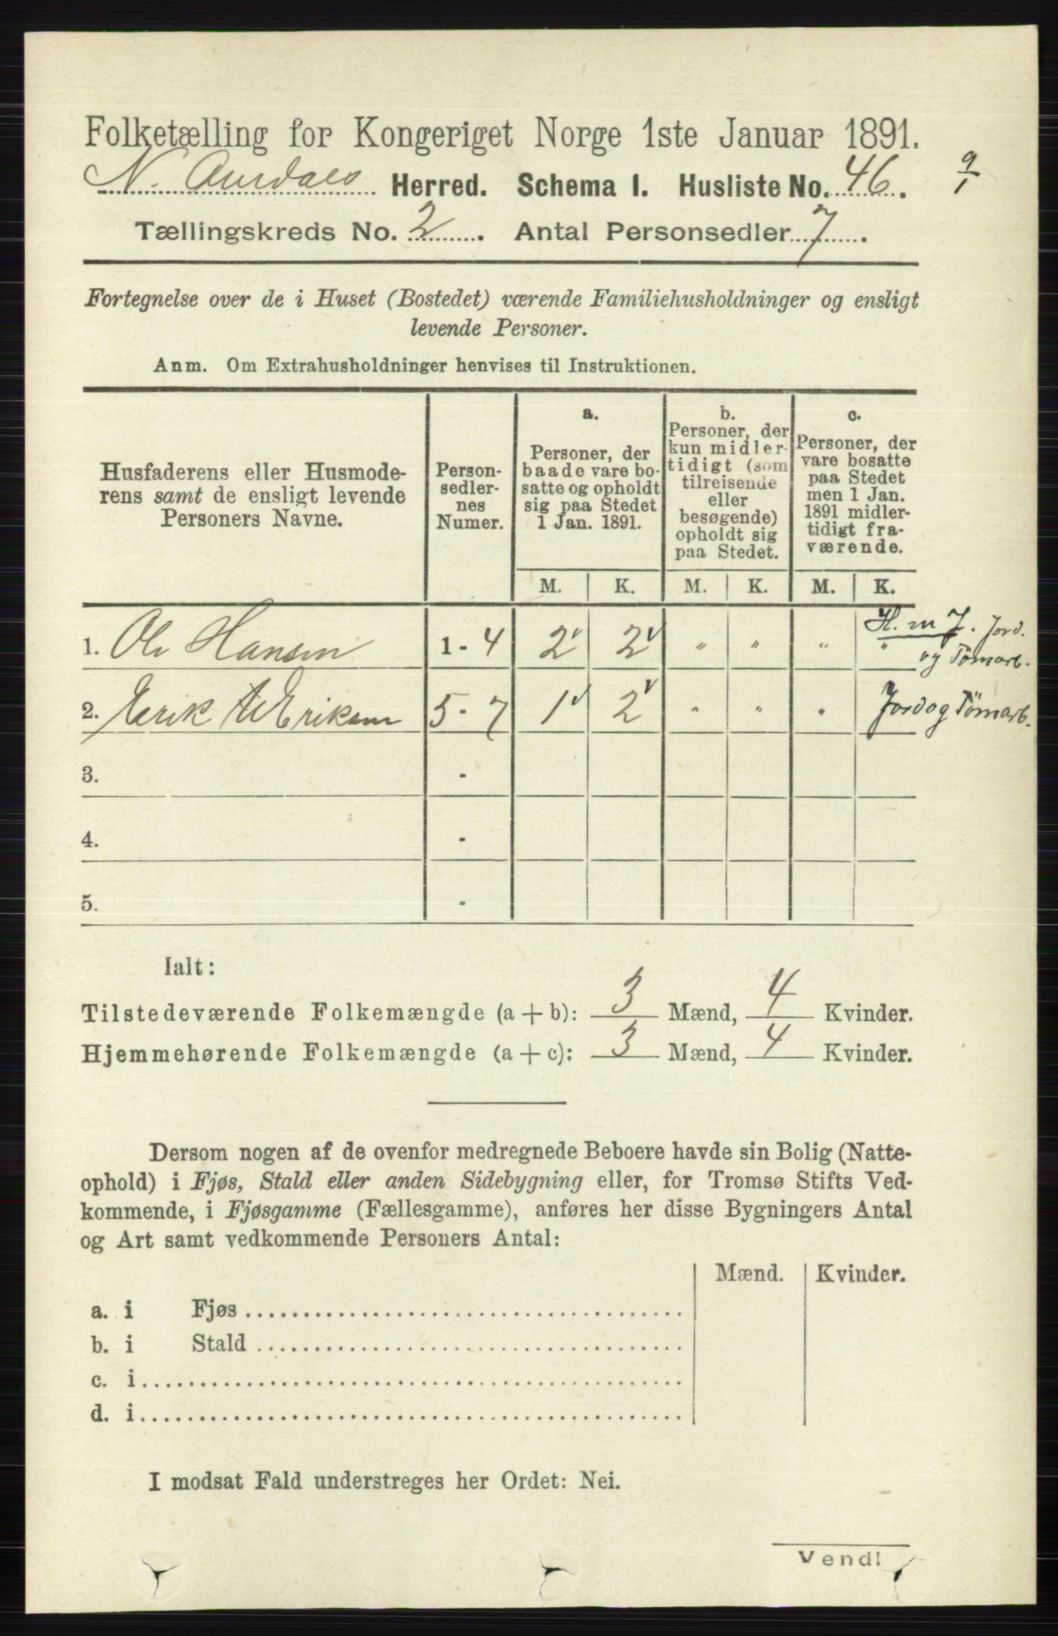 Folketælling for Kongeriget Norge 1ste Januar 1891.
N. Aurdals Herred. Schema I. Husliste No. 46. 9/1
Tællingskreds No. 2. Antal Personsedler 7.
Fortegnelse over de i Huset (Bostedet) værende Familiehusholdninger og ensligt
levende Personer.
Anm. Om Extrahusholdninger henvises til Instruktionen.
Husfaderens eller Husmode-
rens samt de ensligt levende
Personers Navne.
Person-
sedler-
nes
Numer.
a.
Personer, der
baade vare bo-
satte og opholdt
sig paa Stedet
1 Jan. 1891.
b.
Personer, der
kun midler-
tidigt (som
tilreisende
eller
besøgende)
opholdt sig
paa Stedet.
c.
Personer, der
vare bosatte
paa Stedet
men 1 Jan.
1891 midler-
tidigt fra-
værende.
M. K. M. K. M. K.
1. Ole Hansen 1 - 4 2 2 " " " " H. m J. Jord.
og Tømarb.
2. Erik Eriksen 5 - 7 1 2 " " " Jord og Tømarb.
3. -
4. -
5. -
Ialt:
Tilstedeværende Folkemængde (a + b): 3 Mænd, 4 Kvinder.
Hjemmehørende Folkemængde (a + c): 3 Mænd, 4 Kvinder.
Dersom nogen af de ovenfor medregnede Beboere havde sin Bolig (Natte-
ophold) i Fjøs, Stald eller anden Sidebygning eller, for Tromsø Stifts Ved-
kommende, i Fjøsgamme (Fællesgamme), anføres her disse Bygningers Antal
og Art samt vedkommende Personers Antal:
Mænd. Kvinder.
a. i Fjøs
b. i Stald
c. i
d. i
I modsat Fald understreges her Ordet: Nei.
Vend!